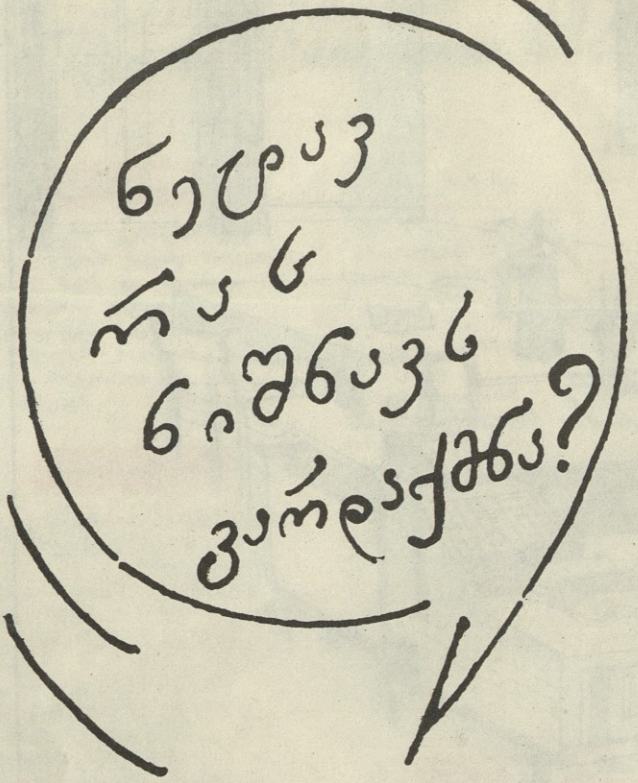 ნეტავ
რას
ნიშნავს
გარდაქმნა?